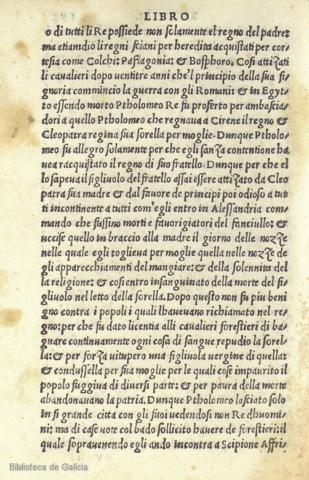 LIBRO
o di tutti li Re possiede non solamente el regno del padre:
ma etiamdio li regni sciani per heredita acquistati per cor
tesia come Colchi: Pafla­gonia: & Bosphoro. Cosi attizati
li cavalieri dopo ventitre anni che'l principio della sua si
gnoria commincio la guerra con gli Romani: & in Egyt
to essendo morto Ptholomeo Re fu proferto per ambascia
dori a quello Ptholomeo che regnaua a Cirene il regno &
Cleopatra regina sua sorella per moglie. Dunque Ptholo
meo fu allegro solamente per che egli sanza contentione ha
uea racquistato il regno di suo fratello. Dunque per che el
lo sapeua il figliuolo del fratello assai essere attizato da Cleo
patra sua madre & dal fauore de principi poi odioso a tut
ti incontinente a tutti com'egli entro in Alessandria com
mando che fussino morti e fauorigiatori del fanciullo: &
uccise quello in braccio alla madre il giorno delle nozze
nelle quale egli toglieua per moglie quella nelle nozze de
gli apparecchiamenti del mangiare: & della solennita del
la religione: & cosi entro insanguinato della morte del fi
gliuolo nel letto della sorella. Dopo questo non fu piu beni
gno contra i popoli i quali l'haueano richiamato nel re
gno: per che fu dato licentia alli cauallieri forestieri di ba
gnare continuamente ogni cosa di sangue repudio la sorel
la: & per forza uitupero una figliuola uergine di quella:
& condussella per sua moglie per le quali cose impaurito il
popolo fuggiua di diversi parte: & per paura della morte
abandonauano la patria. Dunque Ptholomeo lasciato solo
in si grande citta con gli suoi uedendosi non Re d'huomi
ni: ma di case uote col bado sollicito hauere de forestieri: il
quale sopravenendo egli ando incontra a Scipione Affri
Biblioteca de Galicia